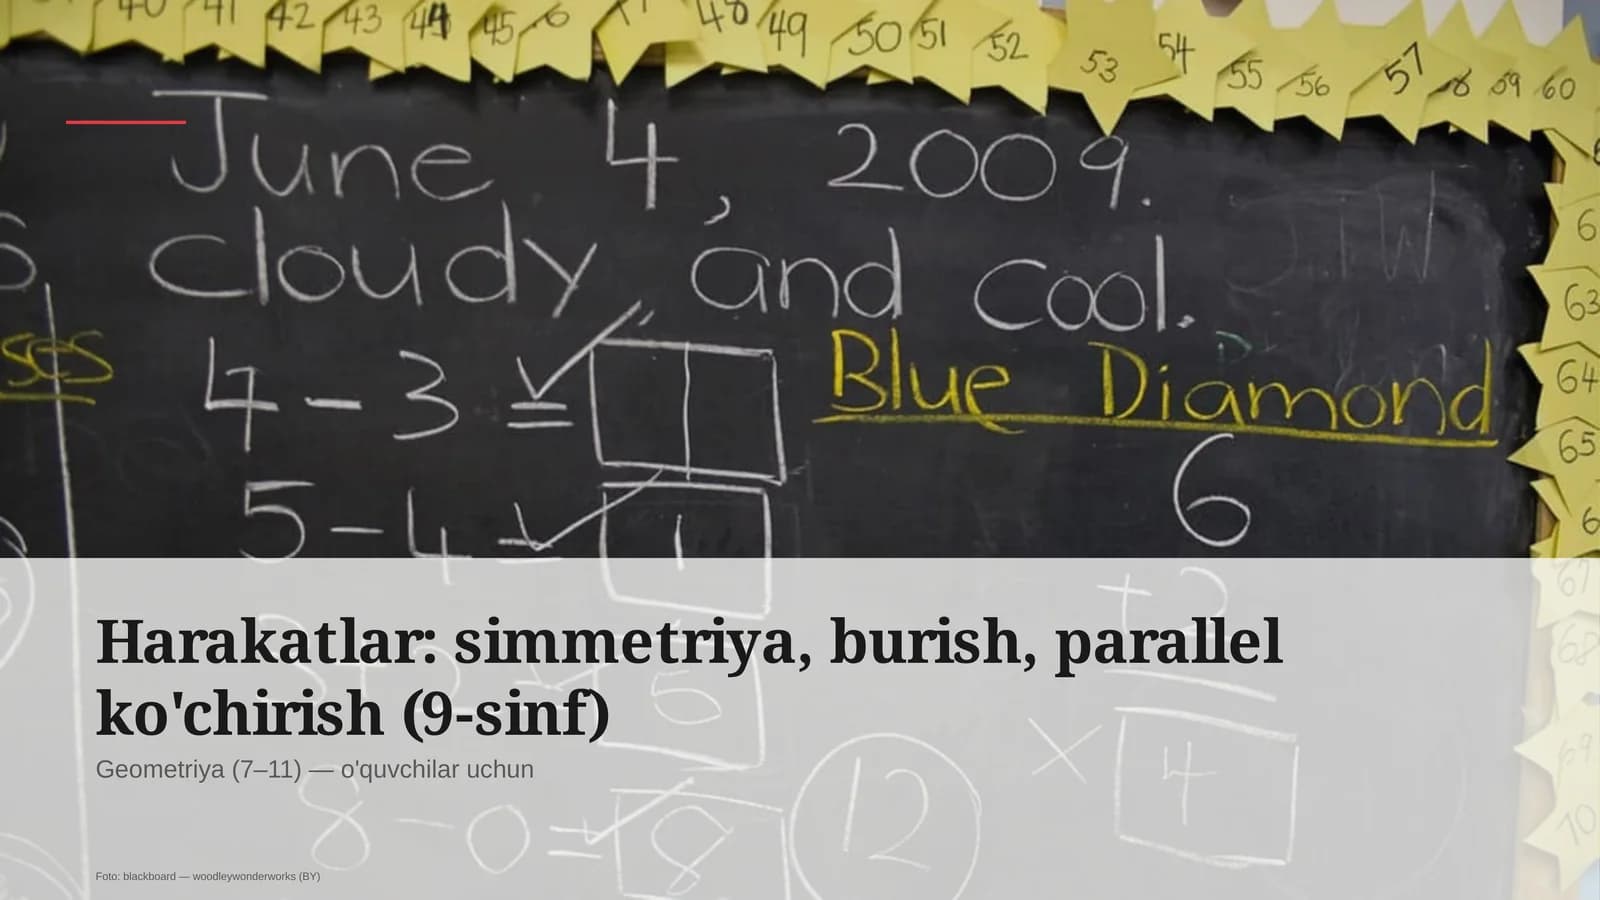 41 42 43 44 45 48 49 50 51 52 53 54 55 56 57 58 59 60
June 4, 2009.
Cloudy, and cool.
63
ses
4 - 3 =
Blue Diamond
64
65
5 - 4 = 1
6
+ 2
67
68
Harakatlar: simmetriya, burish, parallel
ko'chirish (9-sinf)
5
69
Geometriya (7–11) — o'quvchilar uchun
× 4
70
8 - 0 = 8
12
Foto: blackboard — woodleywonderworks (BY)